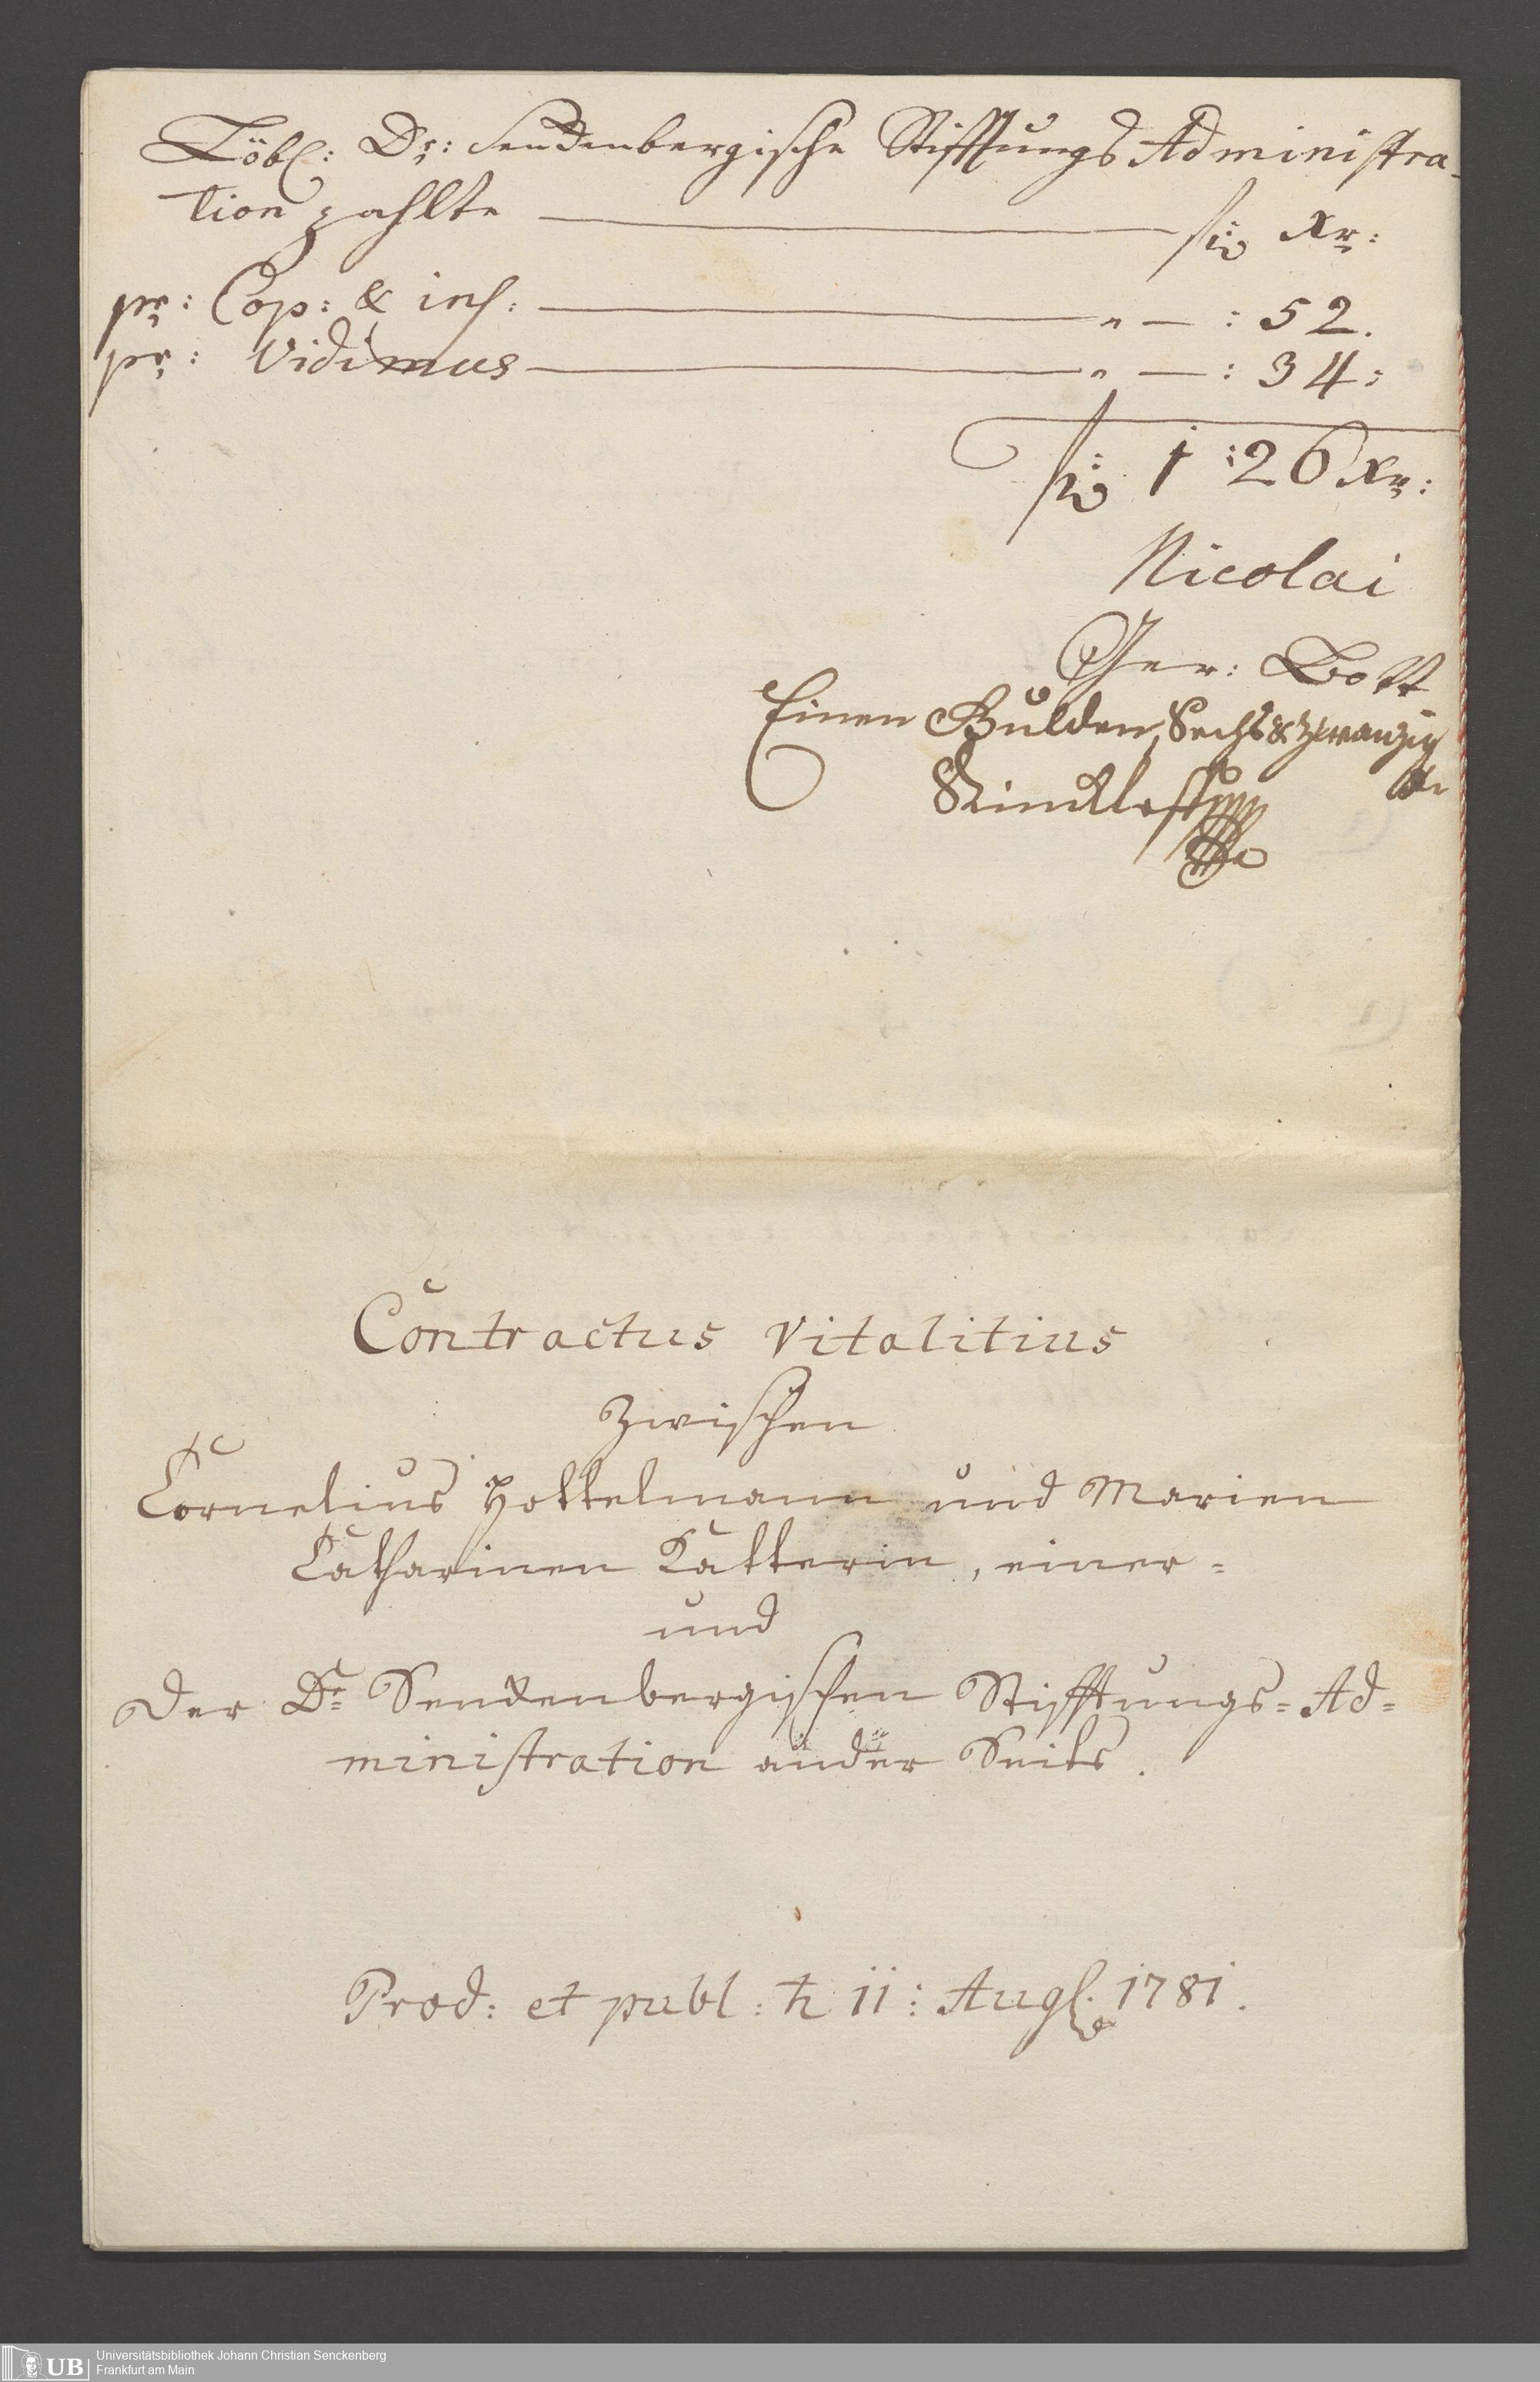 Löbl: Dr: Senckenbergische Stifftungs Administra-
tion zahlte fl: Xr:
pr: Cop: & ins: " — : 52.
pr: Vidimus " — : 34:
fl: 1 : 26 Xr:
Nicolai
Ger: Bott
Einen Gulden, Sechs & zwanzig
Xr
Contractus Vitalitius
Zwischen
Cornelius Hottelmann und Marien
Catharinen Katterin, einer=
und
der Dr Senckenbergischen Stifftungs=Ad=
ministration ander Seits.
Prod: et publ: ♄ 11: Augs. 1781.
UB Universitätsbibliothek Johann Christian Senckenberg
Frankfurt am Main